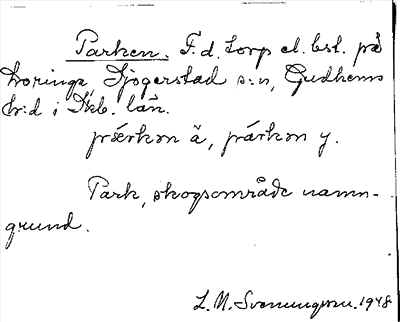 Parken. F. d. torp el. bst. på
Torings, Sjogerstad s:n, Gudhems
h:d i Skb. län.
pærkən ä, párkən y.
Park, skogsområde namn-
grund.
L. M. Svenungsson. 1948